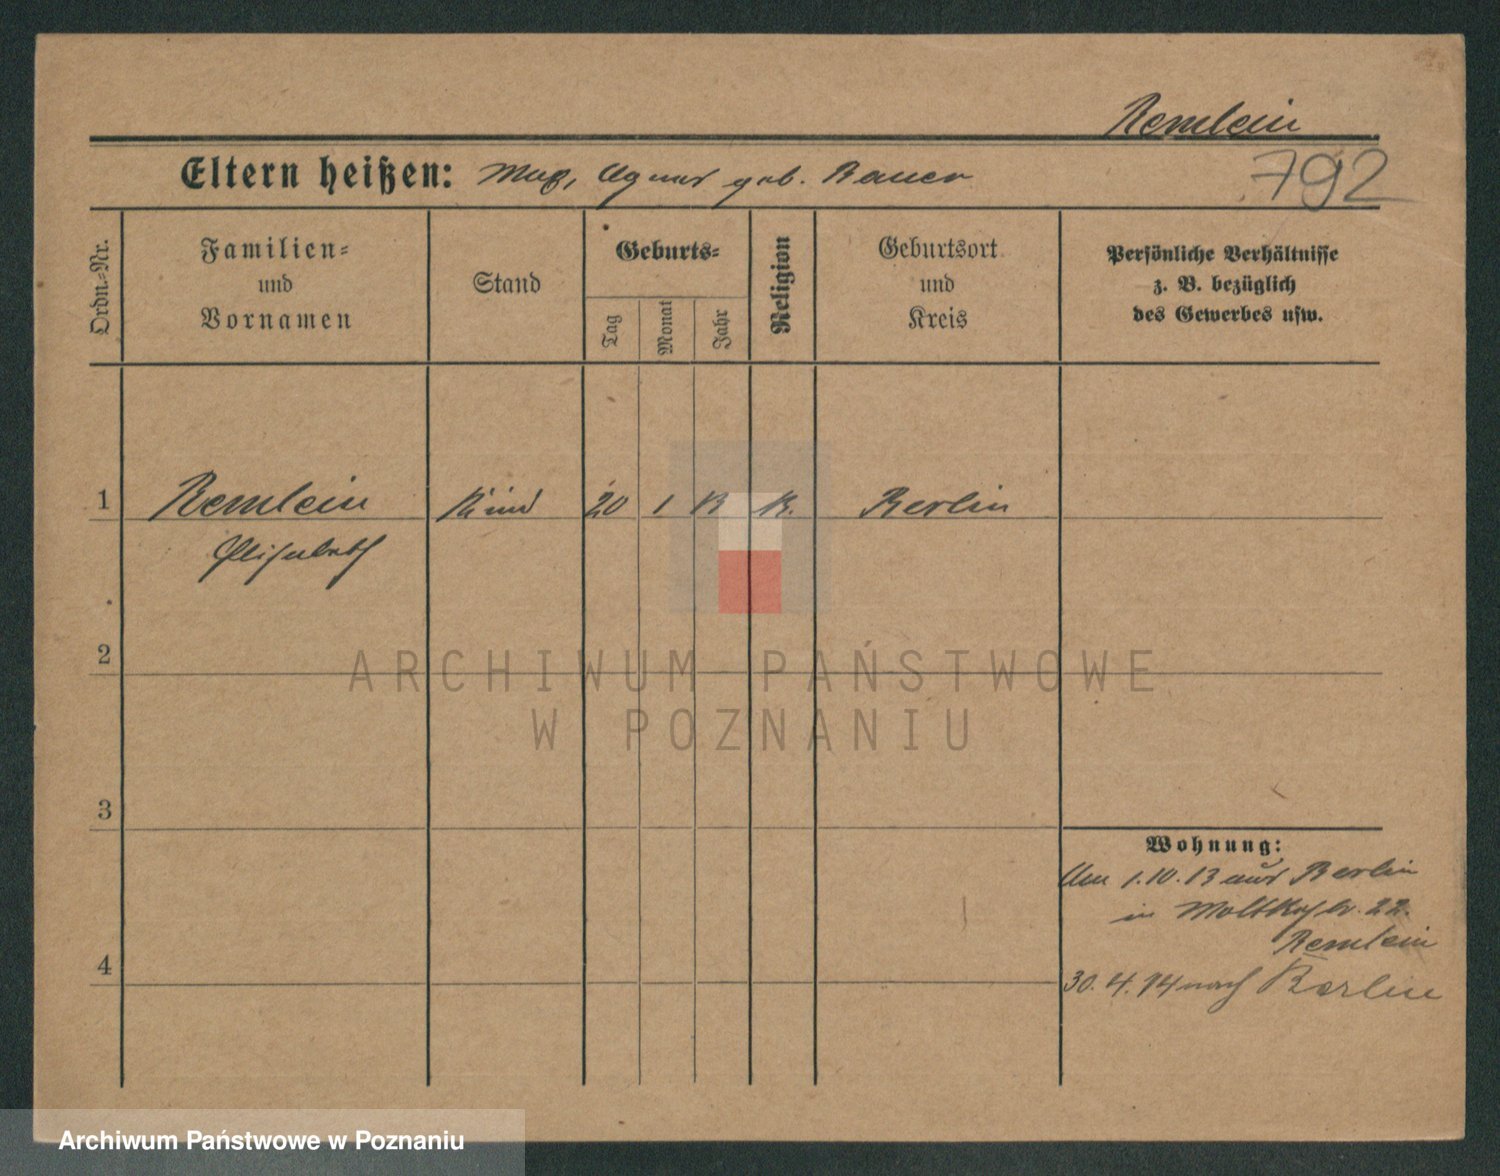 Remlein
Eltern heißen: Max, Agnes geb. Bauer
792
Ordn.=Nr.
Familien=
und
Vornamen
Stand
Geburts=
Tag
Monat
Jahr
Religion
Geburtsort
und
Kreis
Persönliche Verhältnisse
z. B. bezüglich
des Gewerbes usw.
1 Remlein Kind 20 1 13 K. Berlin
Elisabeth
2
3
4
Wohnung:
Am 1.10.13 aus Berlin
in Moltkestr. 22.
Remlein
30.4.14 nach Berlin
ARCHIWUM PAŃSTWOWE
W POZNANIU
Archiwum Państwowe w Poznaniu